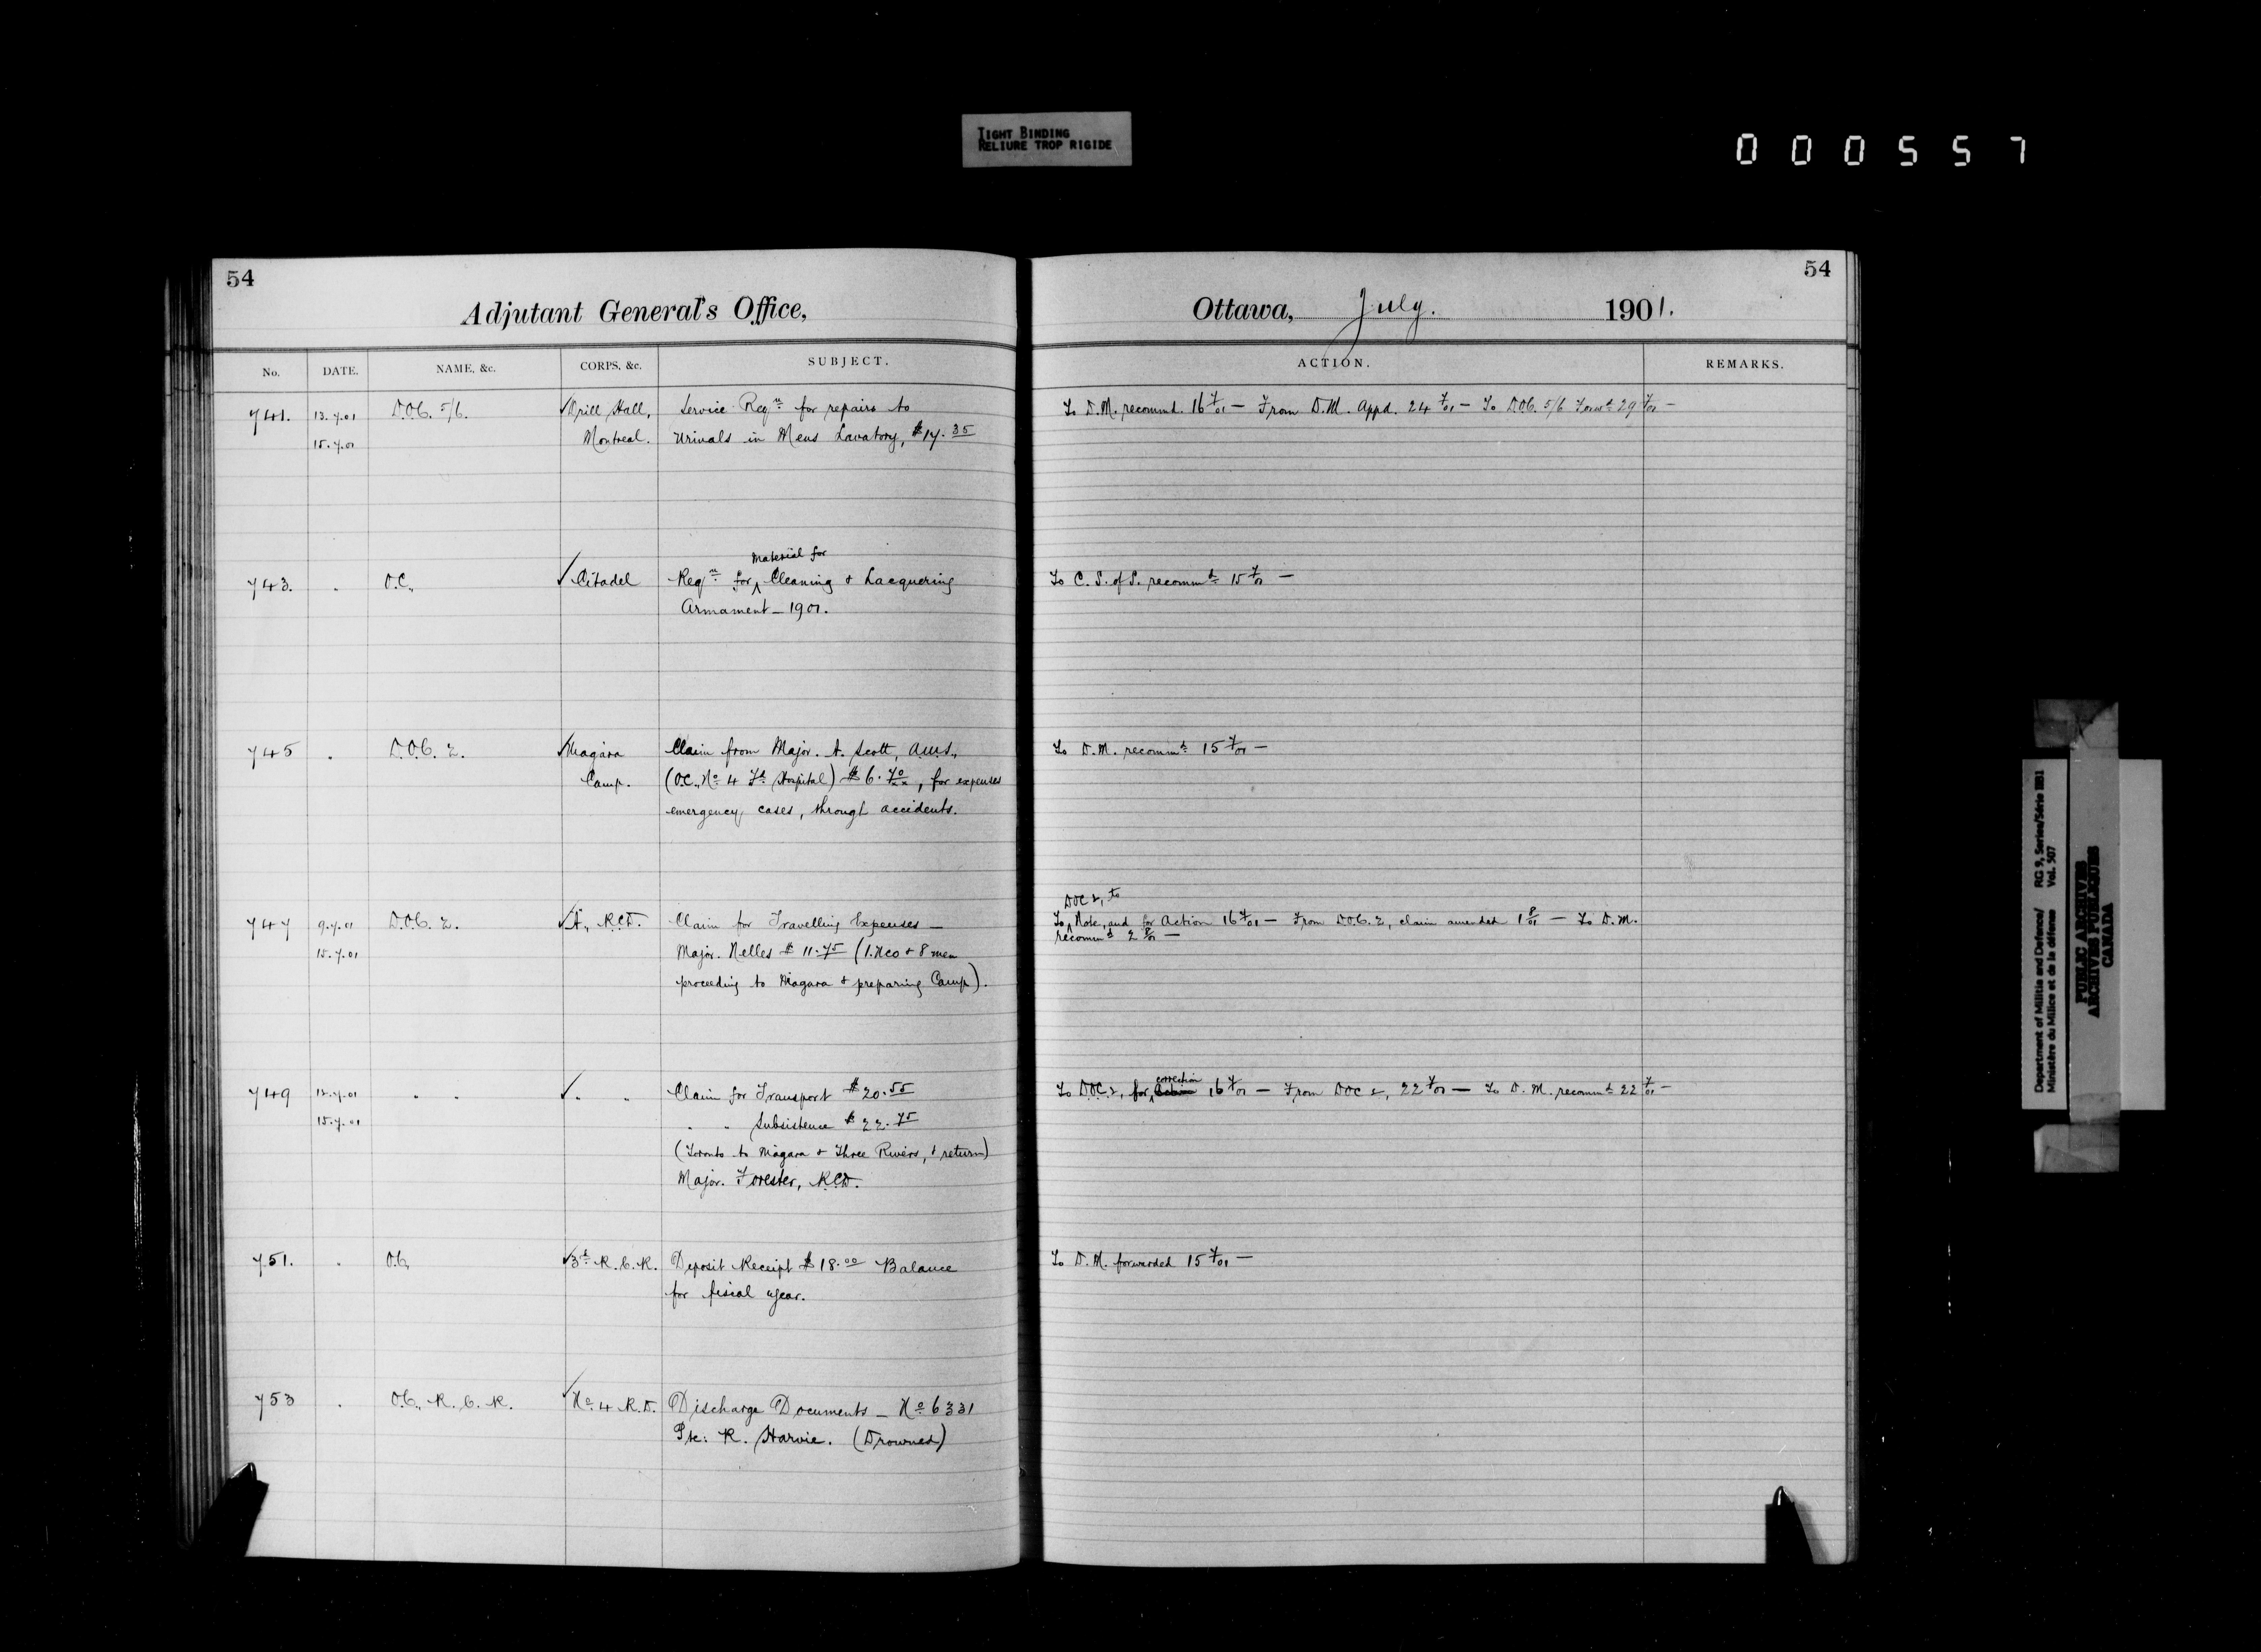 TIGHT BINDING
RELIURE TROP RIGIDE
000557
54
Adjutant General's Office,
No. DATE. NAME, &c. CORPS, &c. SUBJECT.
741. 13.7.01 D.O.C. 5/6. ✓Drill Hall, Service Reqn for repairs to
15.7.01 Montreal. Urinals in Mens Lavatory, $17.35
Material for
743. " O.C., ✓Citadel Reqn for ^ Cleaning & Lacquering
Armament – 1901.
745 " D.O.C. 2. ✓Niagara Claim from Major. A. Scott, A.M.S.,
Camp. (O.C., No 4 Fd Hospital) $6.70/xx, for expenses
emergency cases, through accidents.
747 9.7.01 D.O.C. 2. ✓"A", R.C.D. Claim for Travelling Expenses –
15.7.01 Major. Nelles $11.75 (1. Nco & 8 men
proceeding to Niagara & preparing Camp).
749 12.7.01 " " ✓" " Claim for Transport $20.55
15.7.01 " " Subsistence $22.75
(Toronto to Niagara & Three Rivers, & return)
Major. Forester, R.C.D.
751. " O.C., ✓3d R.C.R. Deposit Receipt $18.00 Balance
for fiscal year.
753 " O.C., R.C.R. ✓No 4 R.D. Discharge Documents – No 6331
Pte: R. Harvie. (Drowned)
54
Ottawa, July. 1901.
ACTION. REMARKS.
To D.M. recommd. 16 7/01 – From D.M. Appd. 24 7/01 – To D.O.C. 5/6 Forwd 29 7/01 –
To C.S. of S. recommd 15 7/01 –
To D.M. recommd 15 7/01 –
DOC 2, to
To ^ Note, and for Action 16 7/01 – From D.O.C. 2, claim amended 1 8/01 – To D.M.
recommd 2 8/01 –
correction
To DOC 2, for ^ Action 16 7/01 – From DOC 2, 22 7/01 – To D.M. recommd 22 7/01 –
To D.M. forwarded 15 7/01 –
Department of Militia and Defence/ RG 9, Series/Série IIB1
Ministère du Milice et de la défense Vol. 507
PUBLIC ARCHIVES
ARCHIVES PUBLIQUES
CANADA